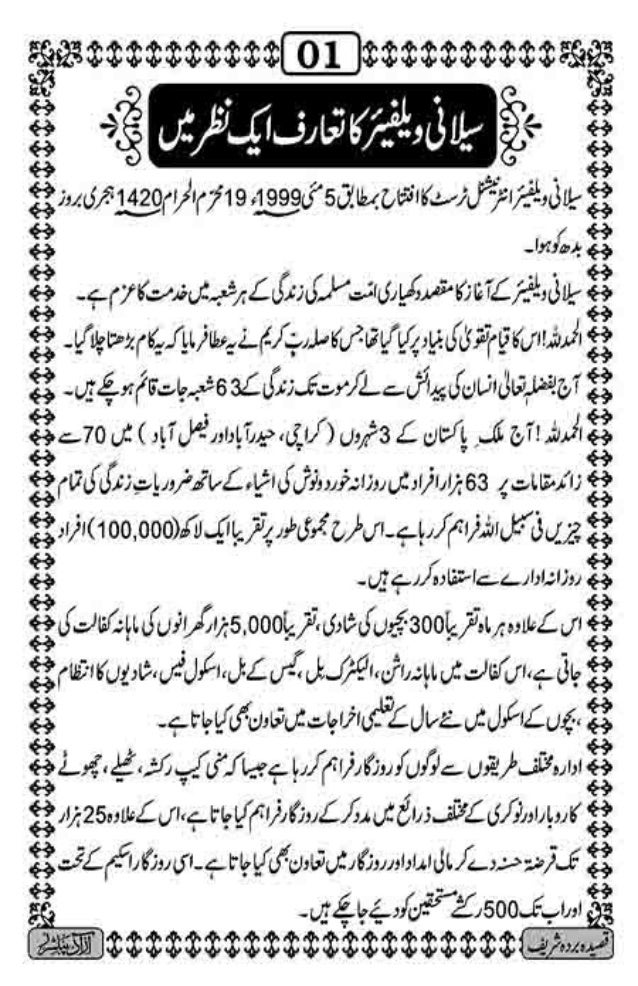 01
سیلانی ویلفیئر کا تعارف ایک نظر میں
سیلانی ویلفیئر انٹرنیشنل ٹرسٹ کا افتتاح بمطابق 5 مئی 1999ء 19 محرّم الحرام 1420 ہجری بروز
بدھ کو ہوا۔
سیلانی ویلفیئر کے آغاز کا مقصد دکھیاری امّت مسلمہ کی زندگی کے ہر شعبہ میں خدمت کا عزم ہے۔
الحمدللہ! اس کا قیام تقویٰ کی بنیاد پر کیا گیا تھا جس کا صلہ ربّ کریم نے یہ عطا فرمایا کہ یہ کام بڑھتا چلا گیا۔
آج بفضلہٖ تعالیٰ انسان کی پیدائش سے لے کر موت تک زندگی کے 63 شعبہ جات قائم ہو چکے ہیں۔
الحمدللہ! آج ملک پاکستان کے 3 شہروں (کراچی، حیدرآباد اور فیصل آباد) میں 70 سے
زائد مقامات پر 63 ہزار افراد میں روزانہ خورد و نوش کی اشیاء کے ساتھ ضروریاتِ زندگی کی تمام
چیزیں فی سبیل اللہ فراہم کر رہا ہے۔ اس طرح مجموعی طور پر تقریبا ایک لاکھ (100,000) افراد
روزانہ ادارے سے استفادہ کر رہے ہیں۔
اس کے علاوہ ہر ماہ تقریباً 300 بچیوں کی شادی، تقریباً 5,000 ہزار گھرانوں کی ماہانہ کفالت کی
جاتی ہے، اس کفالت میں ماہانہ راشن، الیکٹرک بِل، گیس کے بل، اسکول فیس، شادیوں کا انتظام
، بچوں کے اسکول میں نئے سال کے تعلیمی اخراجات میں تعاون بھی کیا جاتا ہے۔
ادارہ مختلف طریقوں سے لوگوں کو روزگار فراہم کر رہا ہے جیسا کہ منی کیپ رکشہ، ٹھیلے، چھوٹے
کاروبار اور نوکری کے مختلف ذرائع میں مدد کر کے روزگار فراہم کیا جاتا ہے، اس کے علاوہ 25 ہزار
تک قرضۂ حسنہ دے کر مالی امداد اور روزگار میں تعاون بھی کیا جاتا ہے۔ اسی روزگار اسکیم کے تحت
اور اب تک 500 رکشے مستحقین کو دیئے جا چکے ہیں۔
قصیدہ بردہ شریف